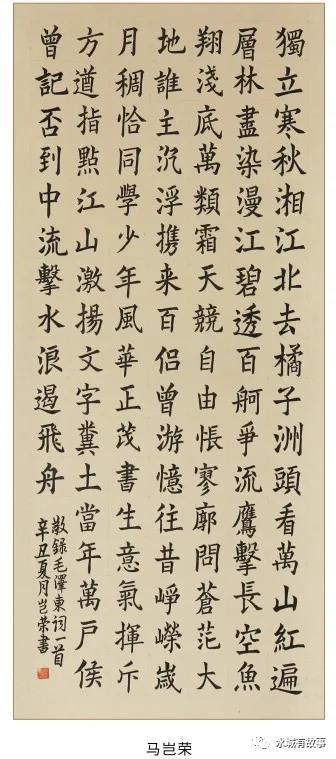 獨立寒秋湘江北去橘子洲頭看萬山紅遍
層林盡染漫江碧透百舸爭流鷹擊長空魚
翔淺底萬類霜天競自由悵寥廓問蒼茫大
地誰主沉浮携来百侣曾游憶往昔崢嶸歲
月稠恰同學少年風華正茂書生意氣揮斥
方遒指點江山激揚文字糞土當年萬戶侯
曾記否到中流擊水浪遏飛舟
敬録毛澤東詞一首
辛丑夏月岂荣書
马岂荣
水城有故事